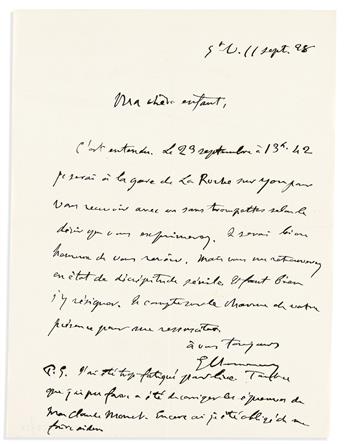 St V. 11 sept. 28
Ma chère enfant,
C'est entendu. Le 23 septembre à 13h. 42
je serai à la gare de La Roche sur Yon pour
vous recevoir avec ou sans trompettes selon le
désir que vous exprimerez. Je serai bien
heureux de vous revoir. Mais vous me retrouverez
en état de décrépitude sénile. Il faut bien
s'y résigner. Je compte sur le charme de votre
présence pour me ressusciter
à vous toujours
P.S. J'ai été trop fatigué pour lire
que j'ai pu faire a été de corriger les épreuves de
mon Claude Monet. Encore ai-je été obligé de me
faire aider